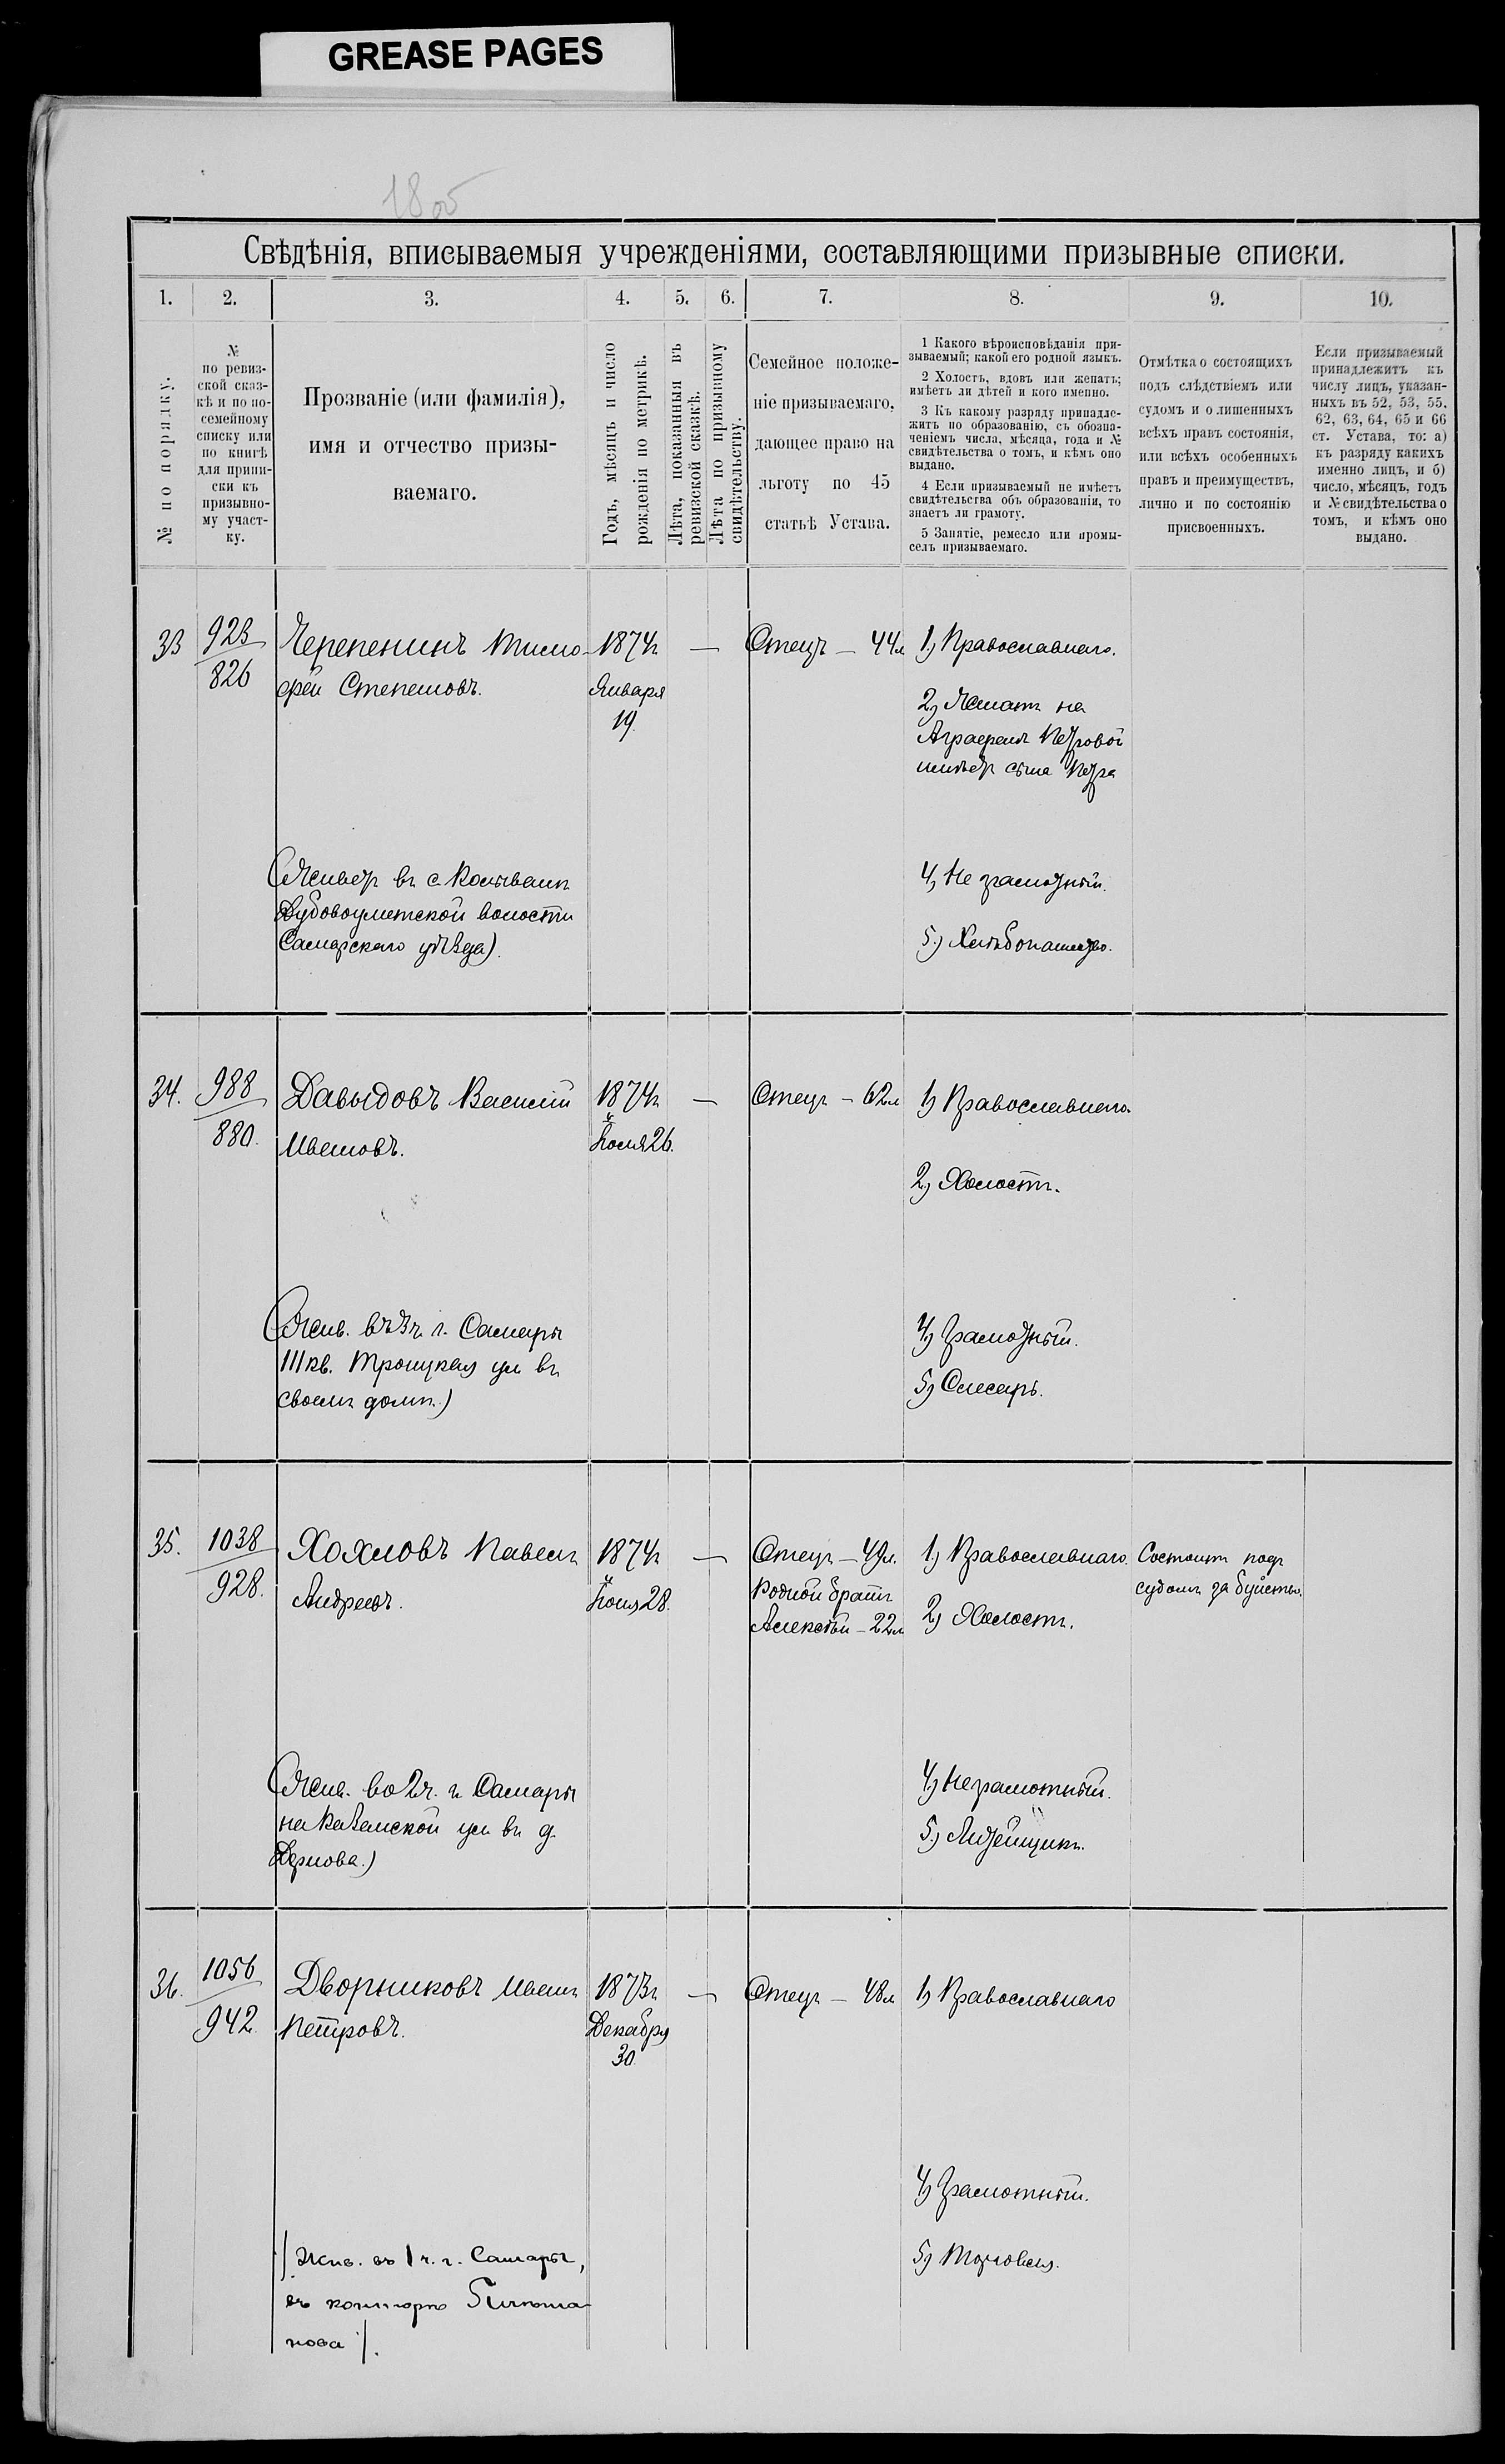 GREASE PAGES
Свѣдѣнія, вписываемыя учрежденіями, составляющими призывные списки.
1. 2. 3. 4. 5. 6. 7. 8. 9. 10.
№ по порядку.
№
по ревиз-
ской сказ-
кѣ и по по-
семейному
списку или
по книгѣ
для припи-
ски къ
призывно-
му участ-
ку.
Прозваніе (или фамилія),
имя и отчество призы-
ваемаго.
Годъ, мѣсяцъ и число
рожденія по метрикѣ.
Лѣта, показанныя въ
ревизской сказкѣ.
Лѣта по призывному
свидѣтельству.
Семейное положе-
ніе призываемаго,
дающее право на
льготу по 45
статьѣ Устава.
1 Какого вѣроисповѣданія при-
зываемый; какой его родной языкъ.
2 Холостъ, вдовъ или женатъ;
имѣетъ ли дѣтей и кого именно.
3 Къ какому разряду принадле-
житъ по образованію, съ обозна-
ченіемъ числа, мѣсяца, года и №
свидѣтельства о томъ, и кѣмъ оно
выдано.
4 Если призываемый не имѣетъ
свидѣтельства объ образованіи, то
знаетъ ли грамоту.
5 Занятіе, ремесло или промы-
селъ призываемаго.
Отмѣтка о состоящихъ
подъ слѣдствіемъ или
судомъ и о лишенныхъ
всѣхъ правъ состоянія,
или всѣхъ особенныхъ
правъ и преимуществъ,
лично и по состоянію
присвоенныхъ.
Если призываемый
принадлежитъ къ
числу лицъ, указан-
ныхъ въ 52, 53, 55,
62, 63, 64, 65 и 66
ст. Устава, то: а)
къ разряду какихъ
именно лицъ, и б)
число, мѣсяцъ, годъ
и № свидѣтельства о
томъ, и кѣмъ оно
выдано.
33
923
826
Черепенинъ Тимо-
фей Степановъ.
1874г
Января
19.
—
Отецъ — 44л
1) Православнаго.
2) Женатъ на
Аграфенѣ Петровой
имѣетъ сына Петра
(Живетъ въ с. Колывани
Дубовоуметской волости
Самарскаго уѣзда).
4) Не грамотный.
5.) Хлѣбопашество.
34.
988
880.
Давыдовъ Василій
Ивановъ.
1874г
Іюля 26.
—
Отецъ — 62л
1) Православнаго
2) Холостъ.
(Жив. въ 3ч. г. Самары
III кв. Троицкая ул въ
своемъ домѣ.)
4) Грамотный.
5) Слесарь.
35.
1038
928.
Хохловъ Павелъ
Андреевъ.
1874г
28.
—
Отецъ — 49л.
Родной братъ
Алексѣй — 22л
1) Православнаго.
2) Холостъ.
Состоитъ подъ
судомъ за буйство.
(Жив. во 2ч. г. Самары
на Казанской ул въ д.
4) Неграмотный.
5.) Литейщикъ.
36.
1056
942
Дворниковъ Иванъ
Петровъ.
1873г
Декабря
30
—
Отецъ — 48л
1) Православнаго
4) Грамотный.
5) Торговля.
/Жив. въ 1 ч. г. Самары,
въ конторѣ
нова/.